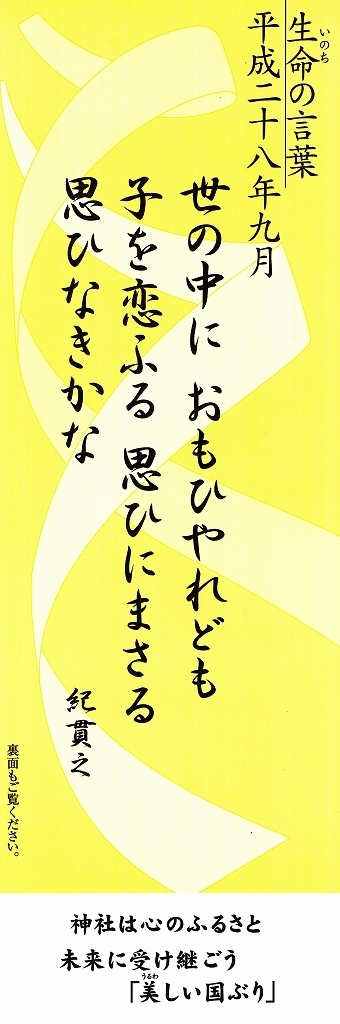 生命の言葉
いのち
平成二十八年九月
世の中に おもひやれども
子を恋ふる 思ひにまさる
思ひなきかな
紀貫之
裏面もご覧ください。
神社は心のふるさと
未来に受け継ごう
「美しい国ぶり」
うるわ